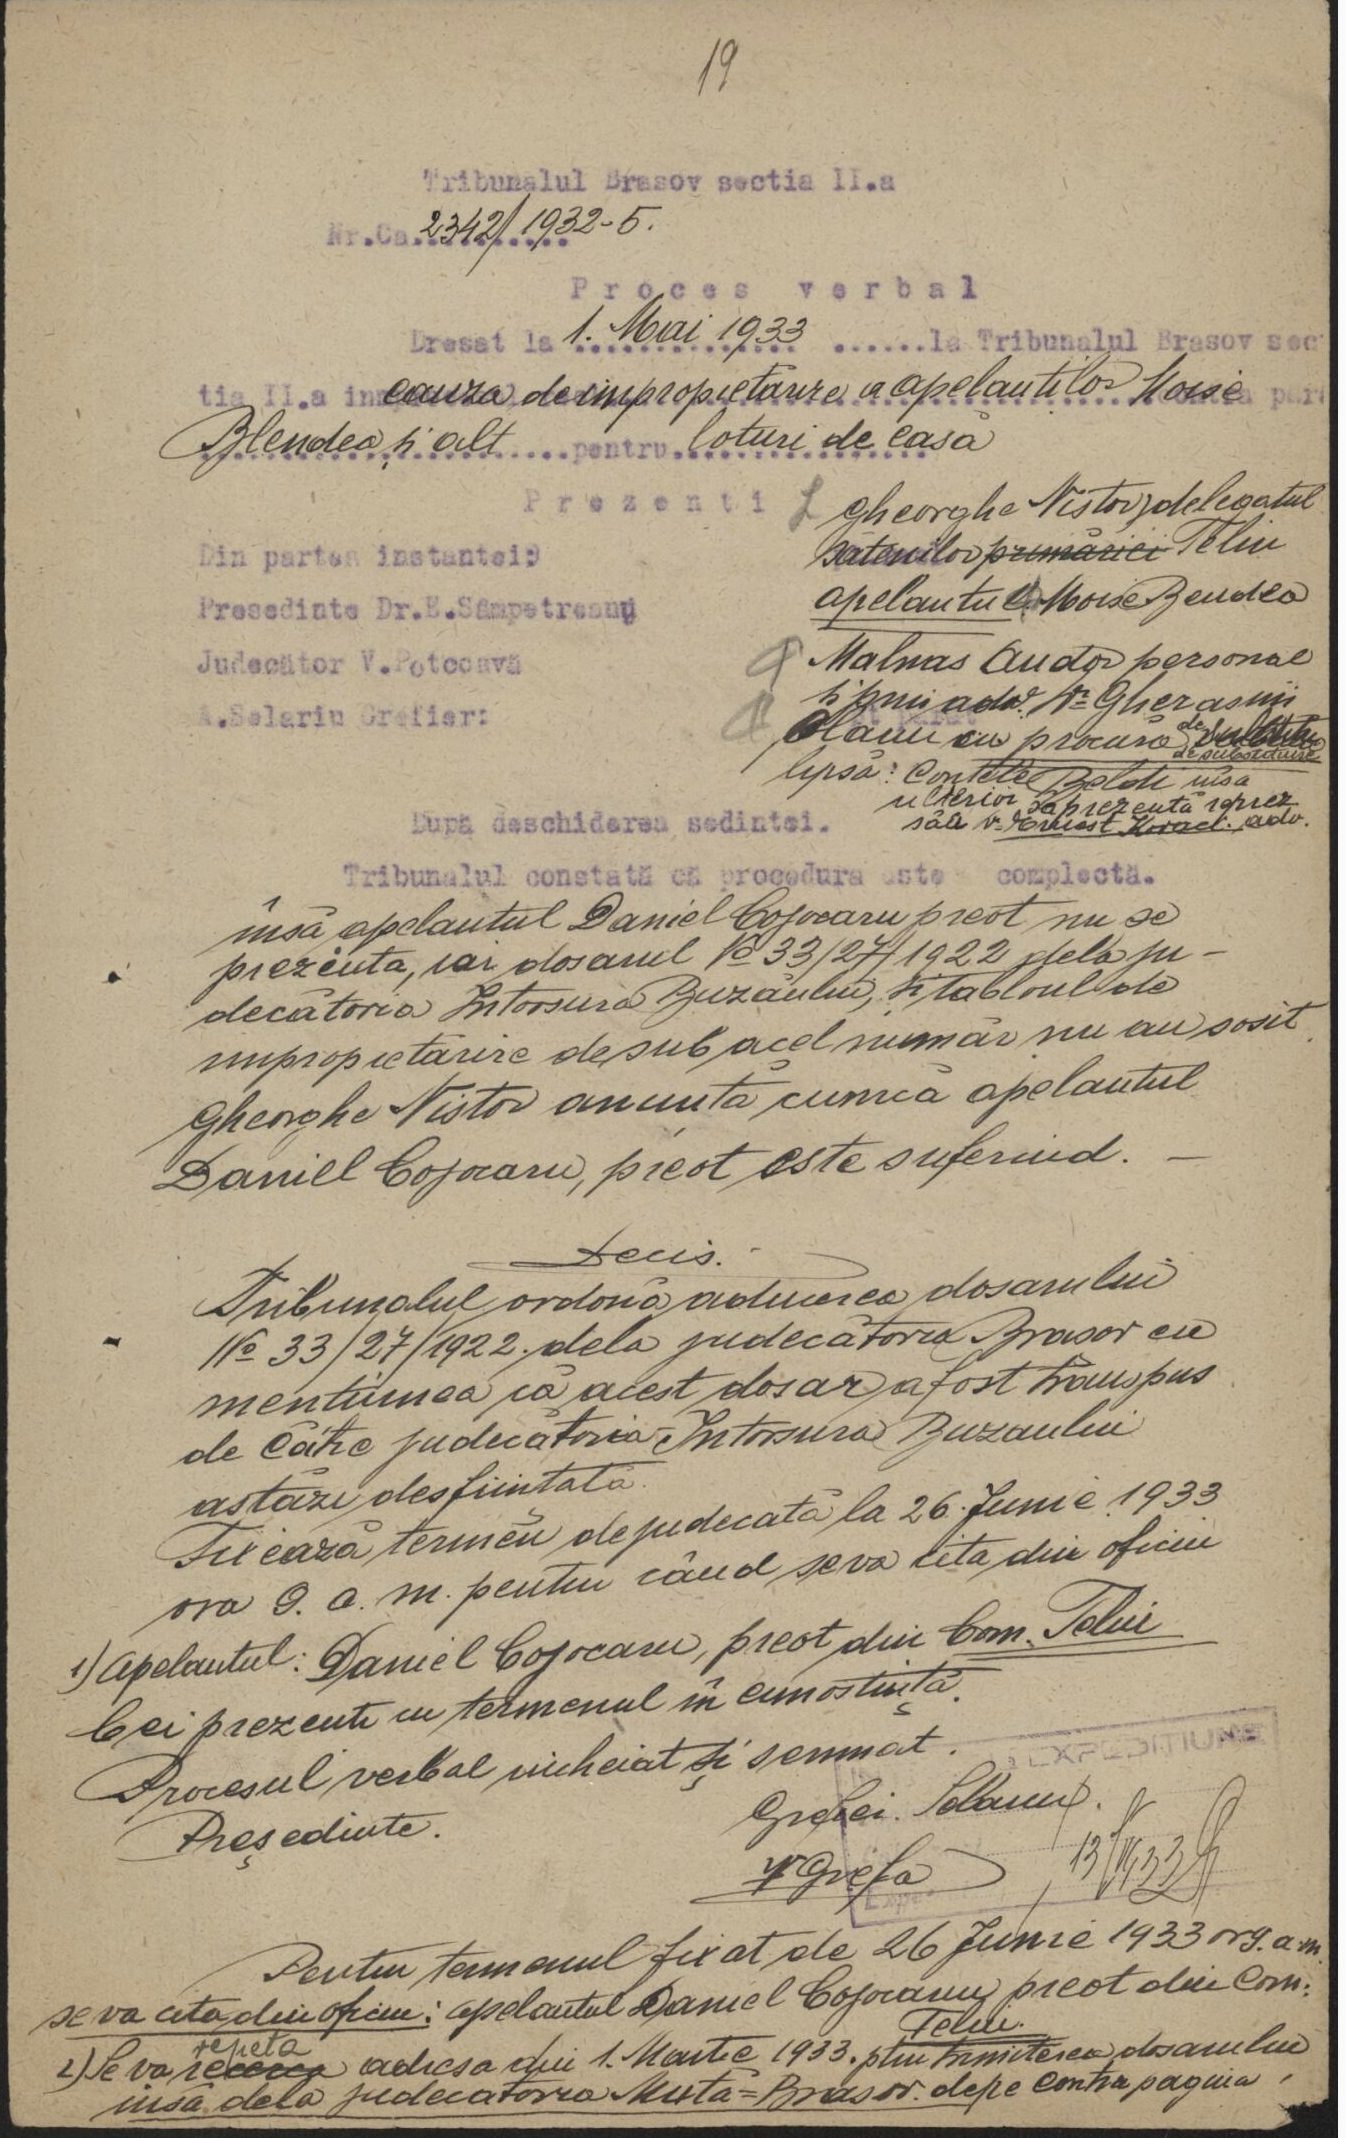 19
Tribunalul Brasov sectia II.a
Nr.Ca. 2342/1932-5.
Proces verbal
Dresat la 1. Mai 1933 ......la Tribunalul Brasov sec
tia II.a in cauza de impropietărire a apelantilor Moise
Blendea și alt pentru loturi de casă
Prezenti
Gheorghe Nistor, delegatul
sătenilor primăriei Teliu
Din partea instantei:
apelantul Moise Bendea
Presedinte Dr.E.Sâmpetreanu
Malnas Andor personal
Judecător V.Potocavă
și prin adv. Dr. Gherasim
A.Selariu Grefier:
cu procură de
de substituire
lipsă: Contele Beldi insa
ulterior se prezentă reprez
său v. Ernest adv.
După deschiderea sedintei.
Tribunalul constată că procedura este complectă.
însă apelantul Daniel Cojocaru preot nu se
prezenta, iar dosarul No 33/27/1922 dela ju-
decătoria Intorsura Buzăului, și tabloul de
impropietărire de sub acel număr nu au sosit.
Gheorghe Nistor anuntă cumcă apelantul
Daniel Cojocaru, preot este suferind. —
Decis.
Tribunalul ordonă aducerea dosarului
No 33/27/1922. dela judecătoria Brasov cu
mentiunea că acest dosar a fost transpus
de către judecătoria Intorsura Buzaului
astăzi desfiintată.
Fixează termen de judecată la 26. Junie 1933
ora 9. a. m. pentru când se va cita din oficiu
1) Apelantul: Daniel Cojocaru, preot din Com. Teliu
Cei prezenti cu termenul în cunostință.
Procesul verbal incheiat și semnat.
EXPEDITIUNE
Președinte.
Grefier. Selariu
Grefa
13/VI 33
Pentru termenul fixat de 26 Junie 1933 or 9. a.m.
se va cita din oficiu: apelantul Daniel Cojocaru preot din Com:
Teliu.
repeta
2) Se va adresa din 1. Martie 1933. ptru trimiterea dosarului
insă dela judecatoria Mixtă=Brasov. depe contra pagina.